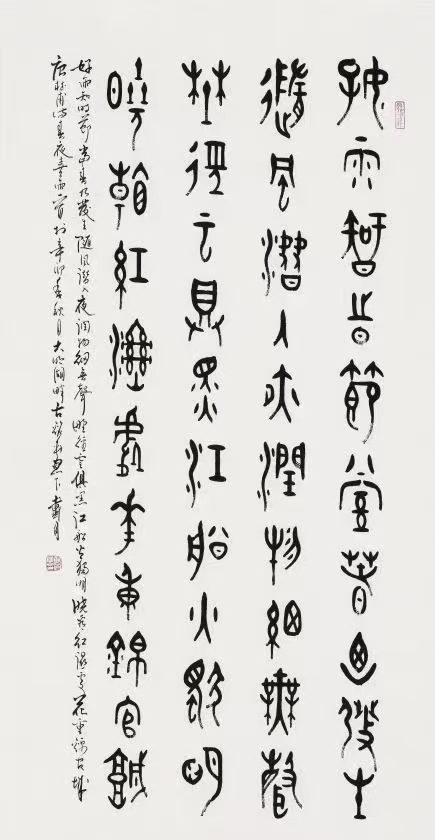 好雨知時節當春乃發生
隨風潛入夜潤物細無聲
野徑雲俱黑江船火獨明
曉看紅濕處花重錦官城
好雨知時節當春乃發生隨風潛入夜潤物細無聲野徑雲俱黑江船火獨明曉看紅濕處花重錦官城
唐杜甫詩春夜喜雨 於辛卯 月大明湖畔古 下戴月